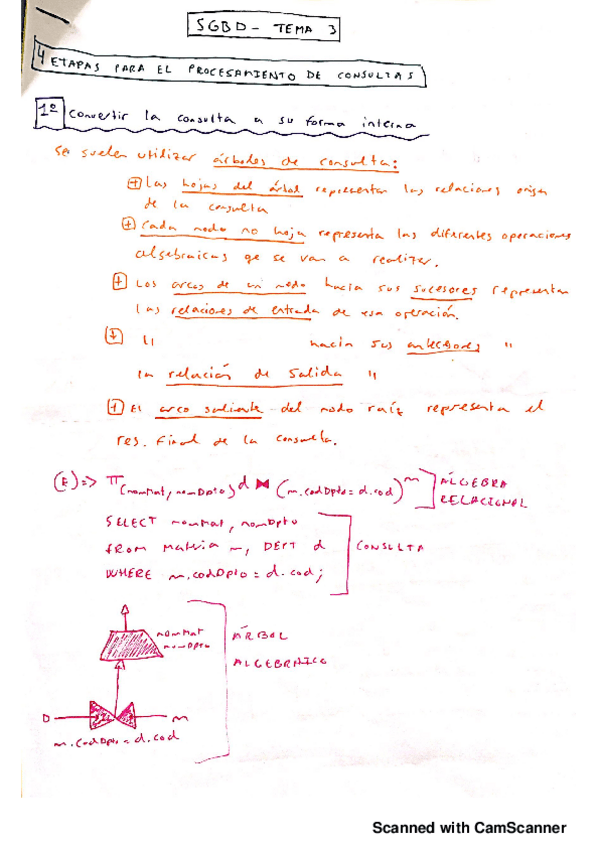 SGBD - TEMA 3
4 ETAPAS PARA EL PROCESAMIENTO DE CONSULTAS
1º Convertir la consulta a su forma interna
Se suelen utilizar árboles de consulta:
+ Las hojas del árbol representan las relaciones origen
de la consulta
+ Cada nodo no hoja representa las diferentes operaciones
algebraicas qe se van a realizar.
+ Los arcos de un nodo hacia sus sucesores representan
las relaciones de entrada de esa operación.
+ " hacia sus antecesores "
la relación de salida "
+ El arco saliente del nodo raíz representa el
res. final de la consulta.
(E) => π(nomMat, nomDpto) d ⋈ (m.codDpto = d.cod) m ] ÁLGEBRA
RELACIONAL
SELECT nomMat, nomDpto
FROM Materia m, DEPT d ] CONSULTA
WHERE m.codDpto = d.cod;
nomMat
nomDpto
ÁRBOL
ALGEBRAICO
D m
m.codDpto = d.cod
Scanned with CamScanner